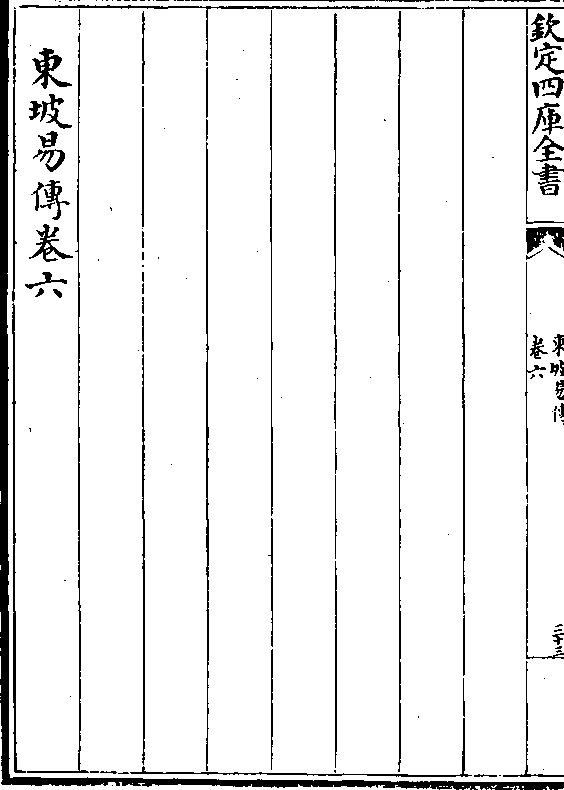 欽定四庫全書
東坡易傳
卷六
三十三
東坡易傳卷六